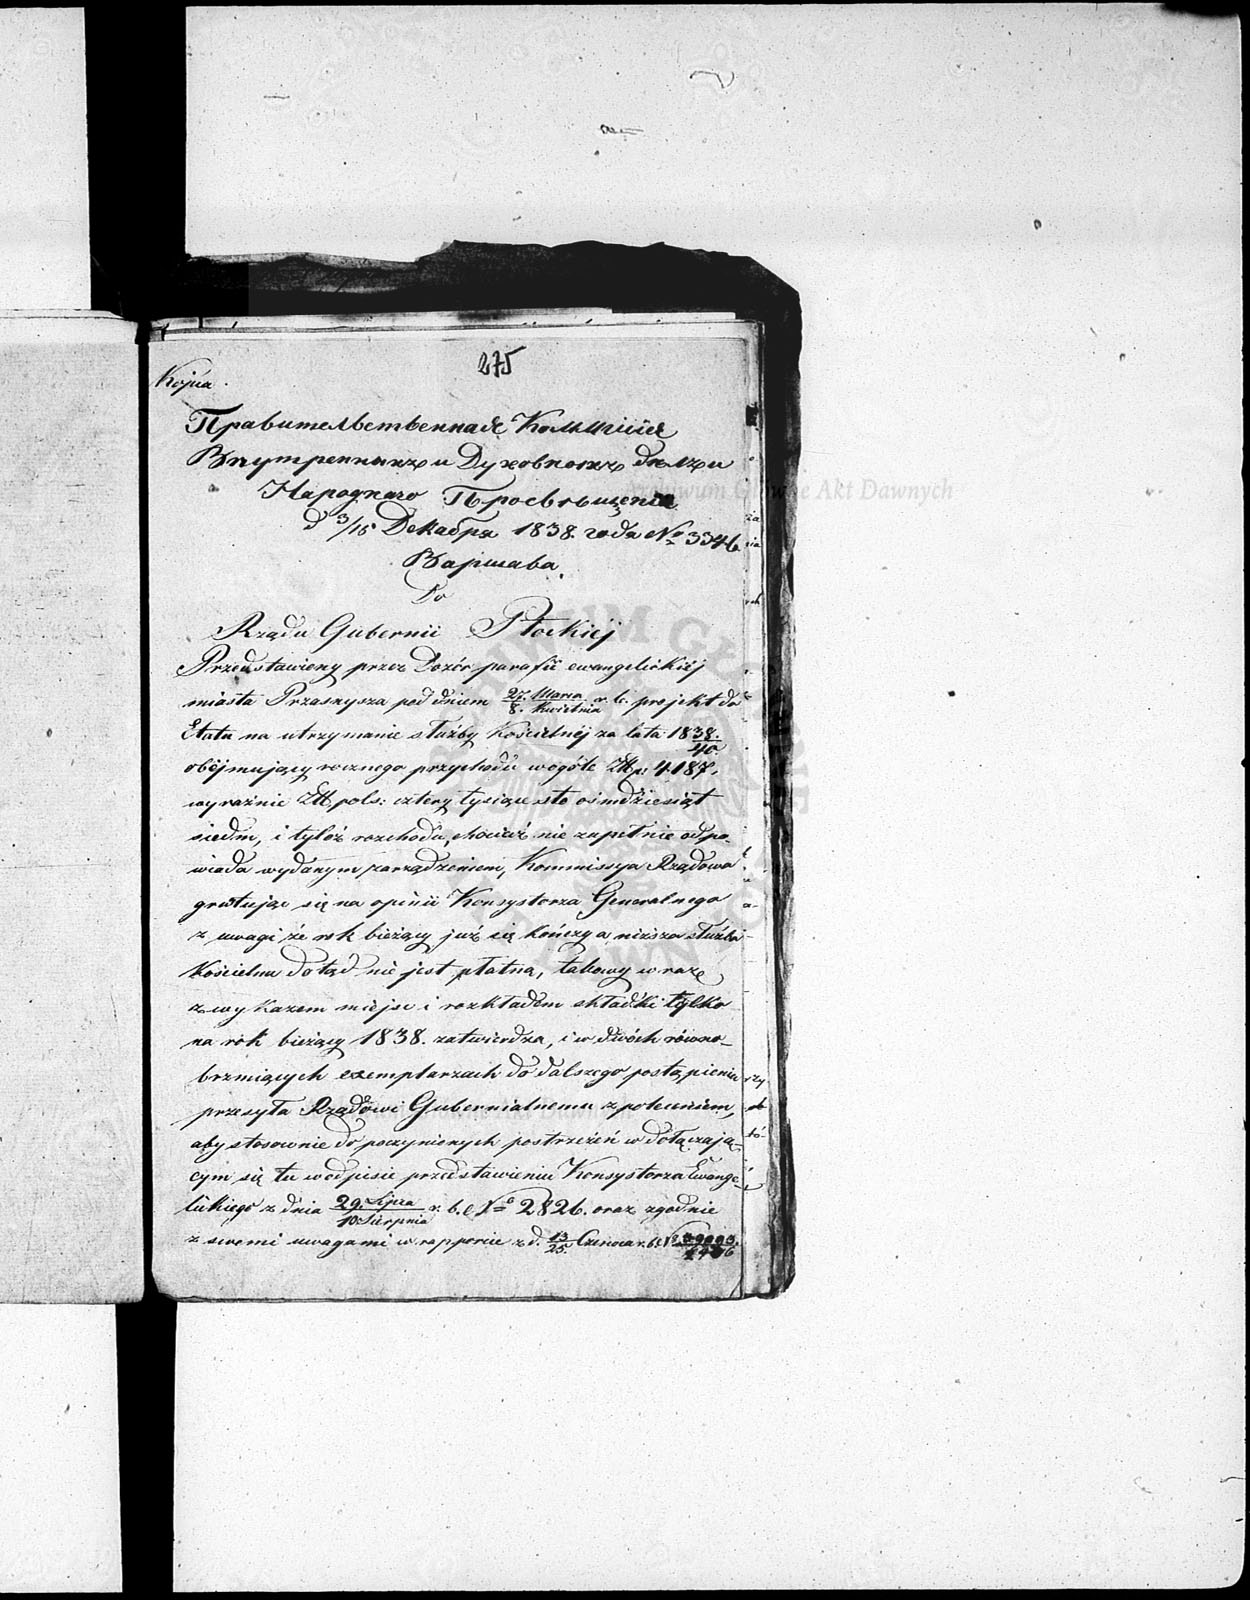 275
Kopia.
Правительственная Коммисія
Внутреннихъ и Духовныхъ дѣлъ и
Народнаго Просвѣщенія
д 3/15 Декабря 1838. года № 3346
Варшава.
Do
Rządu Gubernii Płockiéj
Przedstawiony przez Dozór parafii ewangelickiéj
miasta Przasnysza pod dniem 27. Marca / 8. Kwietnia r. b. projekt do
Etatu na utrzymanie służby Kościelnéj za lata 1838./40.
obejmujący rocznego przychodu wogóle Złp: 4187.
wyraźnie Zł pols: cztery tysiące sto ośmdziesiąt
siedm, i tyleż rozchodu, chociaż nie zupełnie odpo-
wiada wydanym zarządzeniem, Kommissya Rządowa
gruntując się na opinii Konsystorza Generalnego
z uwagi że rok bieżący już się kończy a niższa służba
kościelna dotąd nie jest płatna, takowy w raz
z wykazem miejsc i rozkładem składki tylko
na rok bieżący 1838. zatwierdza, i w dwóch równo-
brzmiących exemplarzach do dalszego postąpienia
przesyła Rządowi Gubernialnemu z poleceniem,
aby stosownie do poczynionych postrzeżeń w dołączają-
cym się tu w odpisie przedstawieniu Konsystorza Ewange-
lickiego z dnia 29. Lipca / 10 Sierpnia r. b. № 2826. oraz zgodnie
z swemi uwagami w rapporcie z d. 13/25. Czerwca r. b. №
Archiwum Główne Akt Dawnych